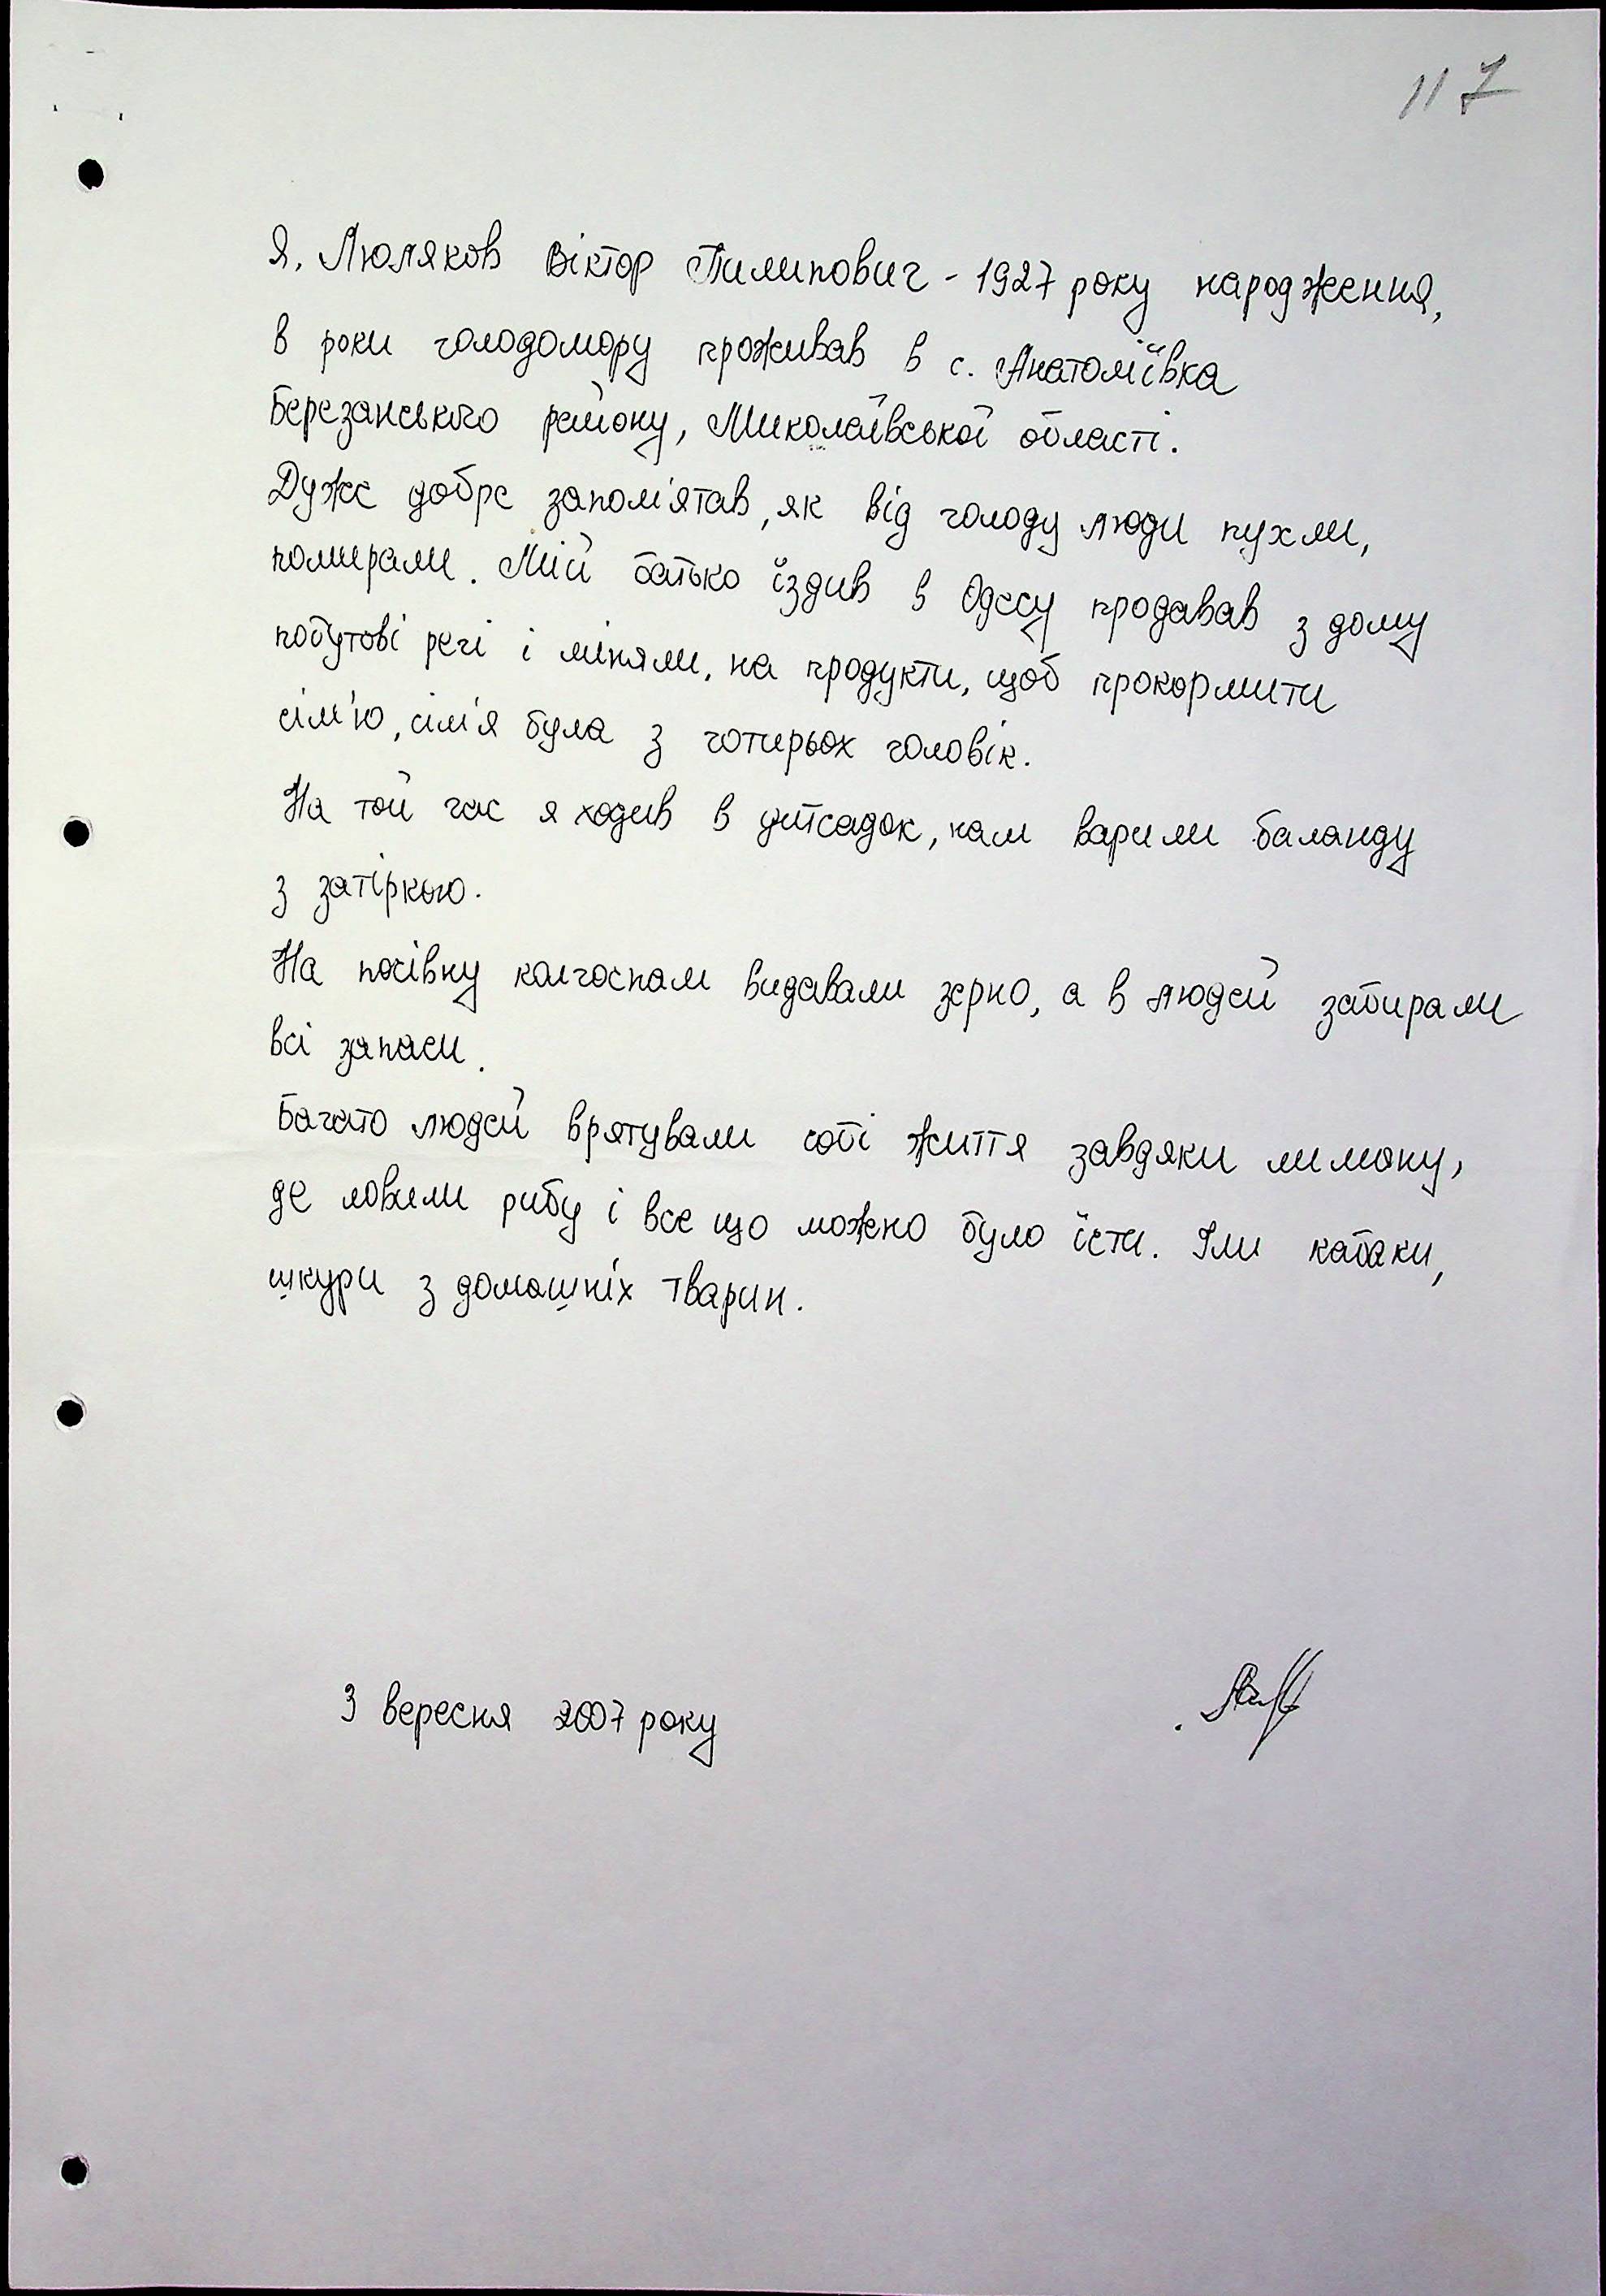 117
Я, Люляков Віктор Пилипович - 1927 року народження,
в роки голодомору проживав в с. Анатоліївка
Березанського району, Миколаївської області.
Дуже добре запом'ятав, як від голоду люди пухли,
помирали. Мій батько їздив в Одесу продавав з дому
побутові речі і міняли, на продукти, щоб прокормити
сім'ю, сім'я була з чотирьох чоловік.
На той час я ходив в дитсадок, нам варили баланду
з затіркою.
На посівну колгоспам видавали зерно, а в людей забирали
всі запаси.
Багато людей врятували собі життя завдяки лиману,
де ловили рибу і все що можно було їсти. Їли кабаки,
шкури з домашніх тварин.
3 вересня 2007 року